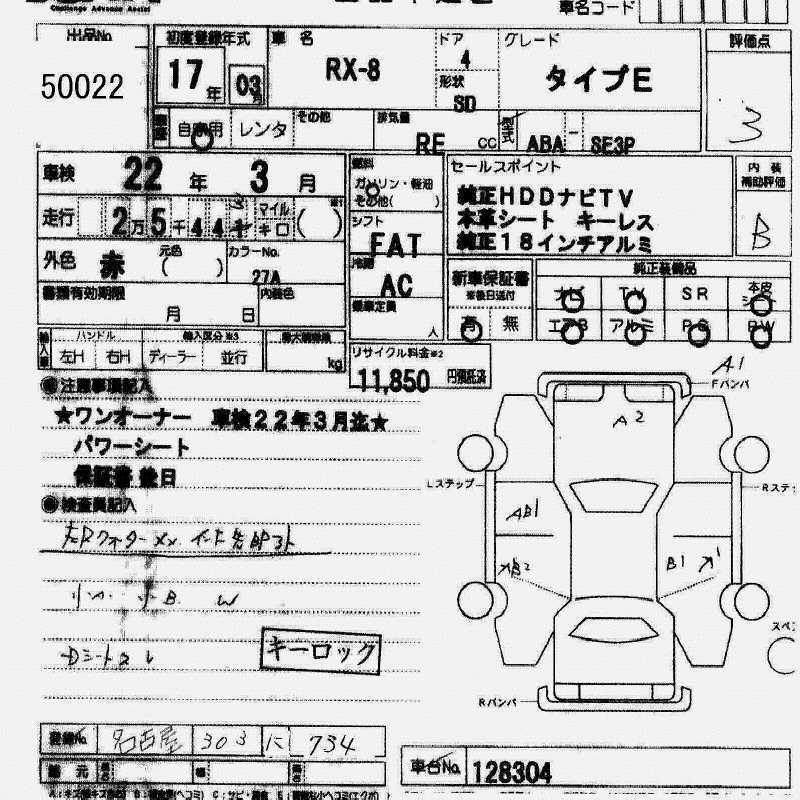 Challenge Advance Assist
車名コード
出品No.
50022
初度登録年式
17年 03月
車名
RX-8
ドア
4
形状
SD
グレード
タイプE
評価点
3
自家用 レンタ その他
排気量
RE cc
型式
ABA - SE3P
車検 22年 3月
走行 2万5千441
マイル
キロ
外色 赤
元色
( )
カラーNo.
27A
書類有効期限
月 日
内装色
燃料
ガソリン・軽油
その他( )
シフト
FAT
冷房
AC
乗車定員
人
セールスポイント
純正HDDナビTV
本革シート キーレス
純正18インチアルミ
内装
補助評価
B
新車保証書
※後日送付
有 無
純正装備品
ナビ TV SR 本皮シート
エアB アルミ PS PW
輸入車
ハンドル
左H 右H
輸入区分※3
ディーラー 並行
最大積載量
kg
リサイクル料金※2
11,850 円預託済
注意事項記入
★ワンオーナー 車検22年3月迄★
パワーシート
保証書後日
検査員記入
小A 小B W
キーロック
A1
Fバンパ
A2
Lステップ
Rステッ
AB1
B1
Rバンパ
スペ
登録No.
名古屋 303 に 734
車台No.
128304